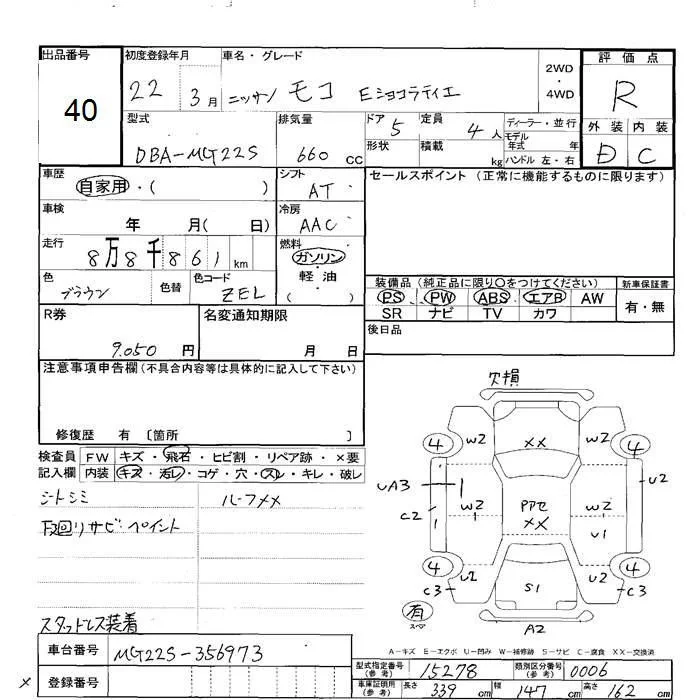 出品番号 初度登録年月 車名・グレード 評価点
40 22 3月 ニッサン モコ Eショコラティエ 2WD・4WD R
型式 排気量 ドア 5 定員 4人 ディーラー・並行 外装 内装
DBA-MG22S 660cc 形状 積載 kg モデル年式 年 ハンドル 左・右 D C
車歴 自家用・( ) シフト AT セールスポイント(正常に機能するものに限ります)
車検 年 月( 日) 冷房 AAC
走行 8万8千861km 燃料 ガソリン・軽油 ( )
色 ブラウン 色替 色コード ZEL
装備品(純正品に限り〇をつけてください) 新車保証書
PS PW ABS エアB AW 有・無
SR ナビ TV カワ
R券 9.050円 名変通知期限 月 日 後日品
注意事項申告欄(不具合内容等は具体的に記入して下さい)
修復歴 有 〔箇所 〕
検査員 FW キズ・飛石・ヒビ割・リペア跡・×要
記入欄 内装 キズ・汚レ・コゲ・穴・スレ・キレ・破レ
シートシミ ルーフメメ
下回リサビ・ペイント
スタッドレス装着
欠損
4 W2 XX W2 4
UA3 U2
W2 PPアセ XX W2
C2 U1
4 U2 S1 U2 4
C3 C3
有 スペア A2
A-キズ E-エクボ U-凹み W-補修跡 S-サビ C-腐食 XX-交換済
車台番号 MG22S-356973
型式指定番号(参考) 15278 類別区分番号(参考) 0006
× 登録番号
車庫証明用(参考) 長さ 339cm 幅 147cm 高さ 162cm